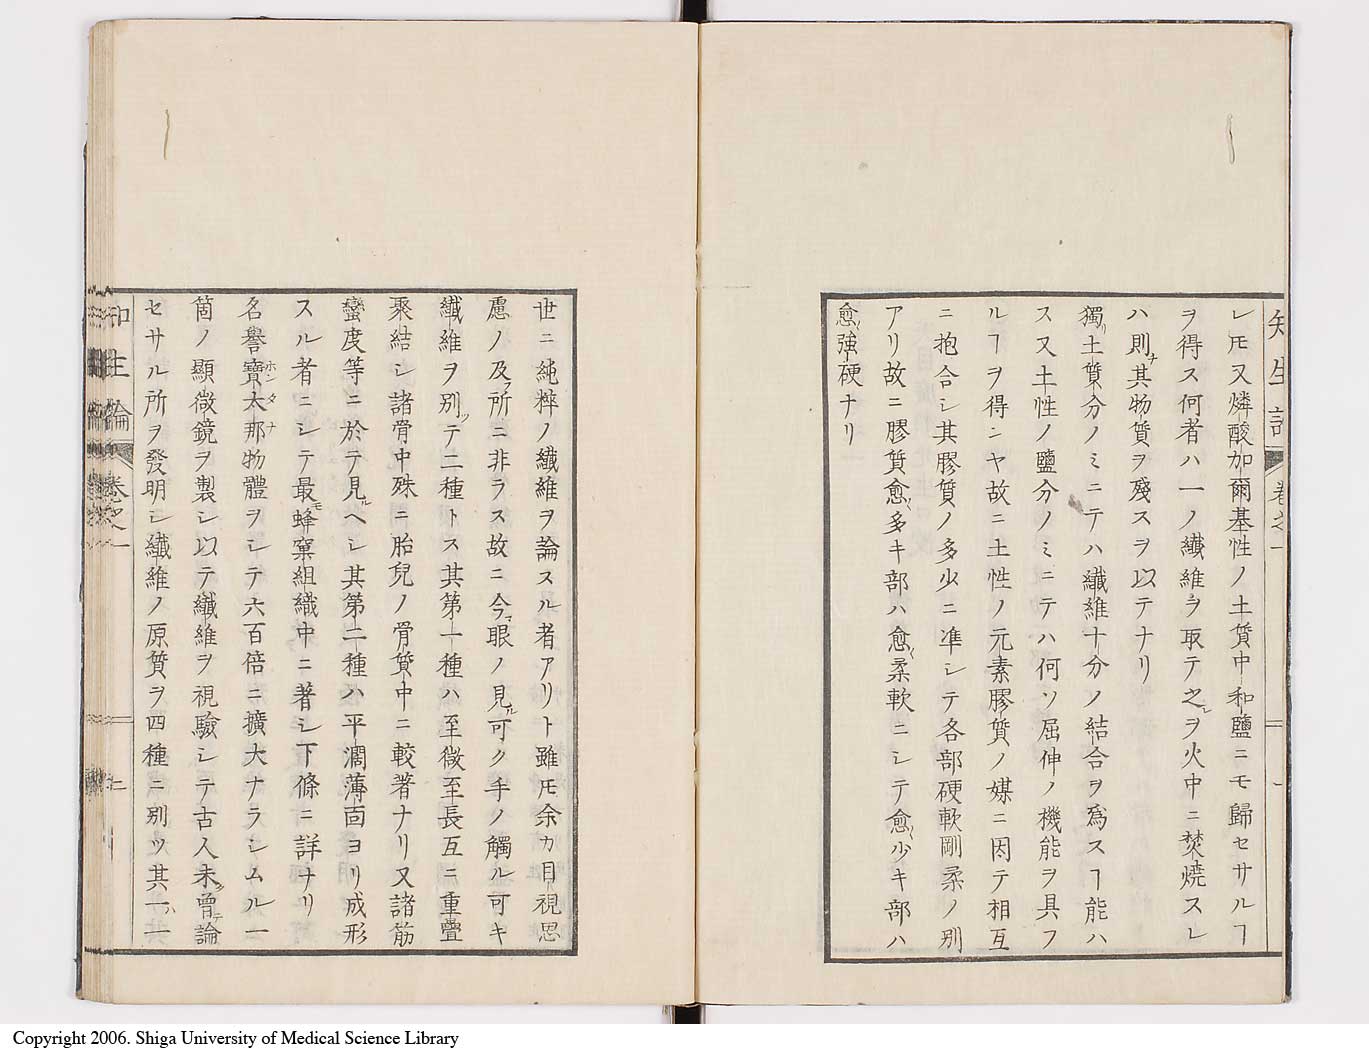 知生論 卷之一
レ𪜈又燐酸加爾基性ノ土質中和鹽ニモ歸セサルヿ
ヲ得ス何者ハ一ノ纎維ヲ取テ之レヲ火中ニ焚燒スレ
ハ則ナ其物質ヲ殘スヲ以テナリ
獨リ土質分ノミニテハ纎維十分ノ結合ヲ爲スヿ能ハ
ス又土性ノ鹽分ノミニテハ何ソ屈伸ノ機能ヲ具フ
ルヿヲ得ンヤ故ニ土性ノ元素膠質ノ媒ニ因テ相互
ニ抱合シ其膠質ノ多少ニ準シテ各部硬軟剛柔ノ別
アリ故ニ膠質愈多キ部ハ愈柔軟ニシテ愈少キ部ハ
愈強硬ナリ
世ニ純粹ノ纎維ヲ論スル者アリト雖𪜈余カ目視思
慮ノ及フ所ニ非ラス故ニ今マ眼ノ見ル可ク手ノ觸ル可キ
纎維ヲ別ツテ二種トス其第一種ハ至微至長互ニ重疊
聚結シ諸骨中殊ニ胎兒ノ骨質中ニ較著ナリ又諸筋
蠻度等ニ於テ見ルヘシ其第二種ハ平濶薄面ヨリ成形
スル者ニシテ最モ蜂窠組織中ニ著シ下條ニ詳ナリ
名譽寶太那物體ヲシテ六百倍ニ擴大ナラシムル一
箇ノ顯微鏡ヲ製シ以テ纎維ヲ視驗シテ古人未タ曾テ論
セサル所ヲ發明シ纎維ノ原質ヲ四種ニ別ツ其一ハ一
知生論 卷之一
Copyright 2006. Shiga University of Medical Science Library